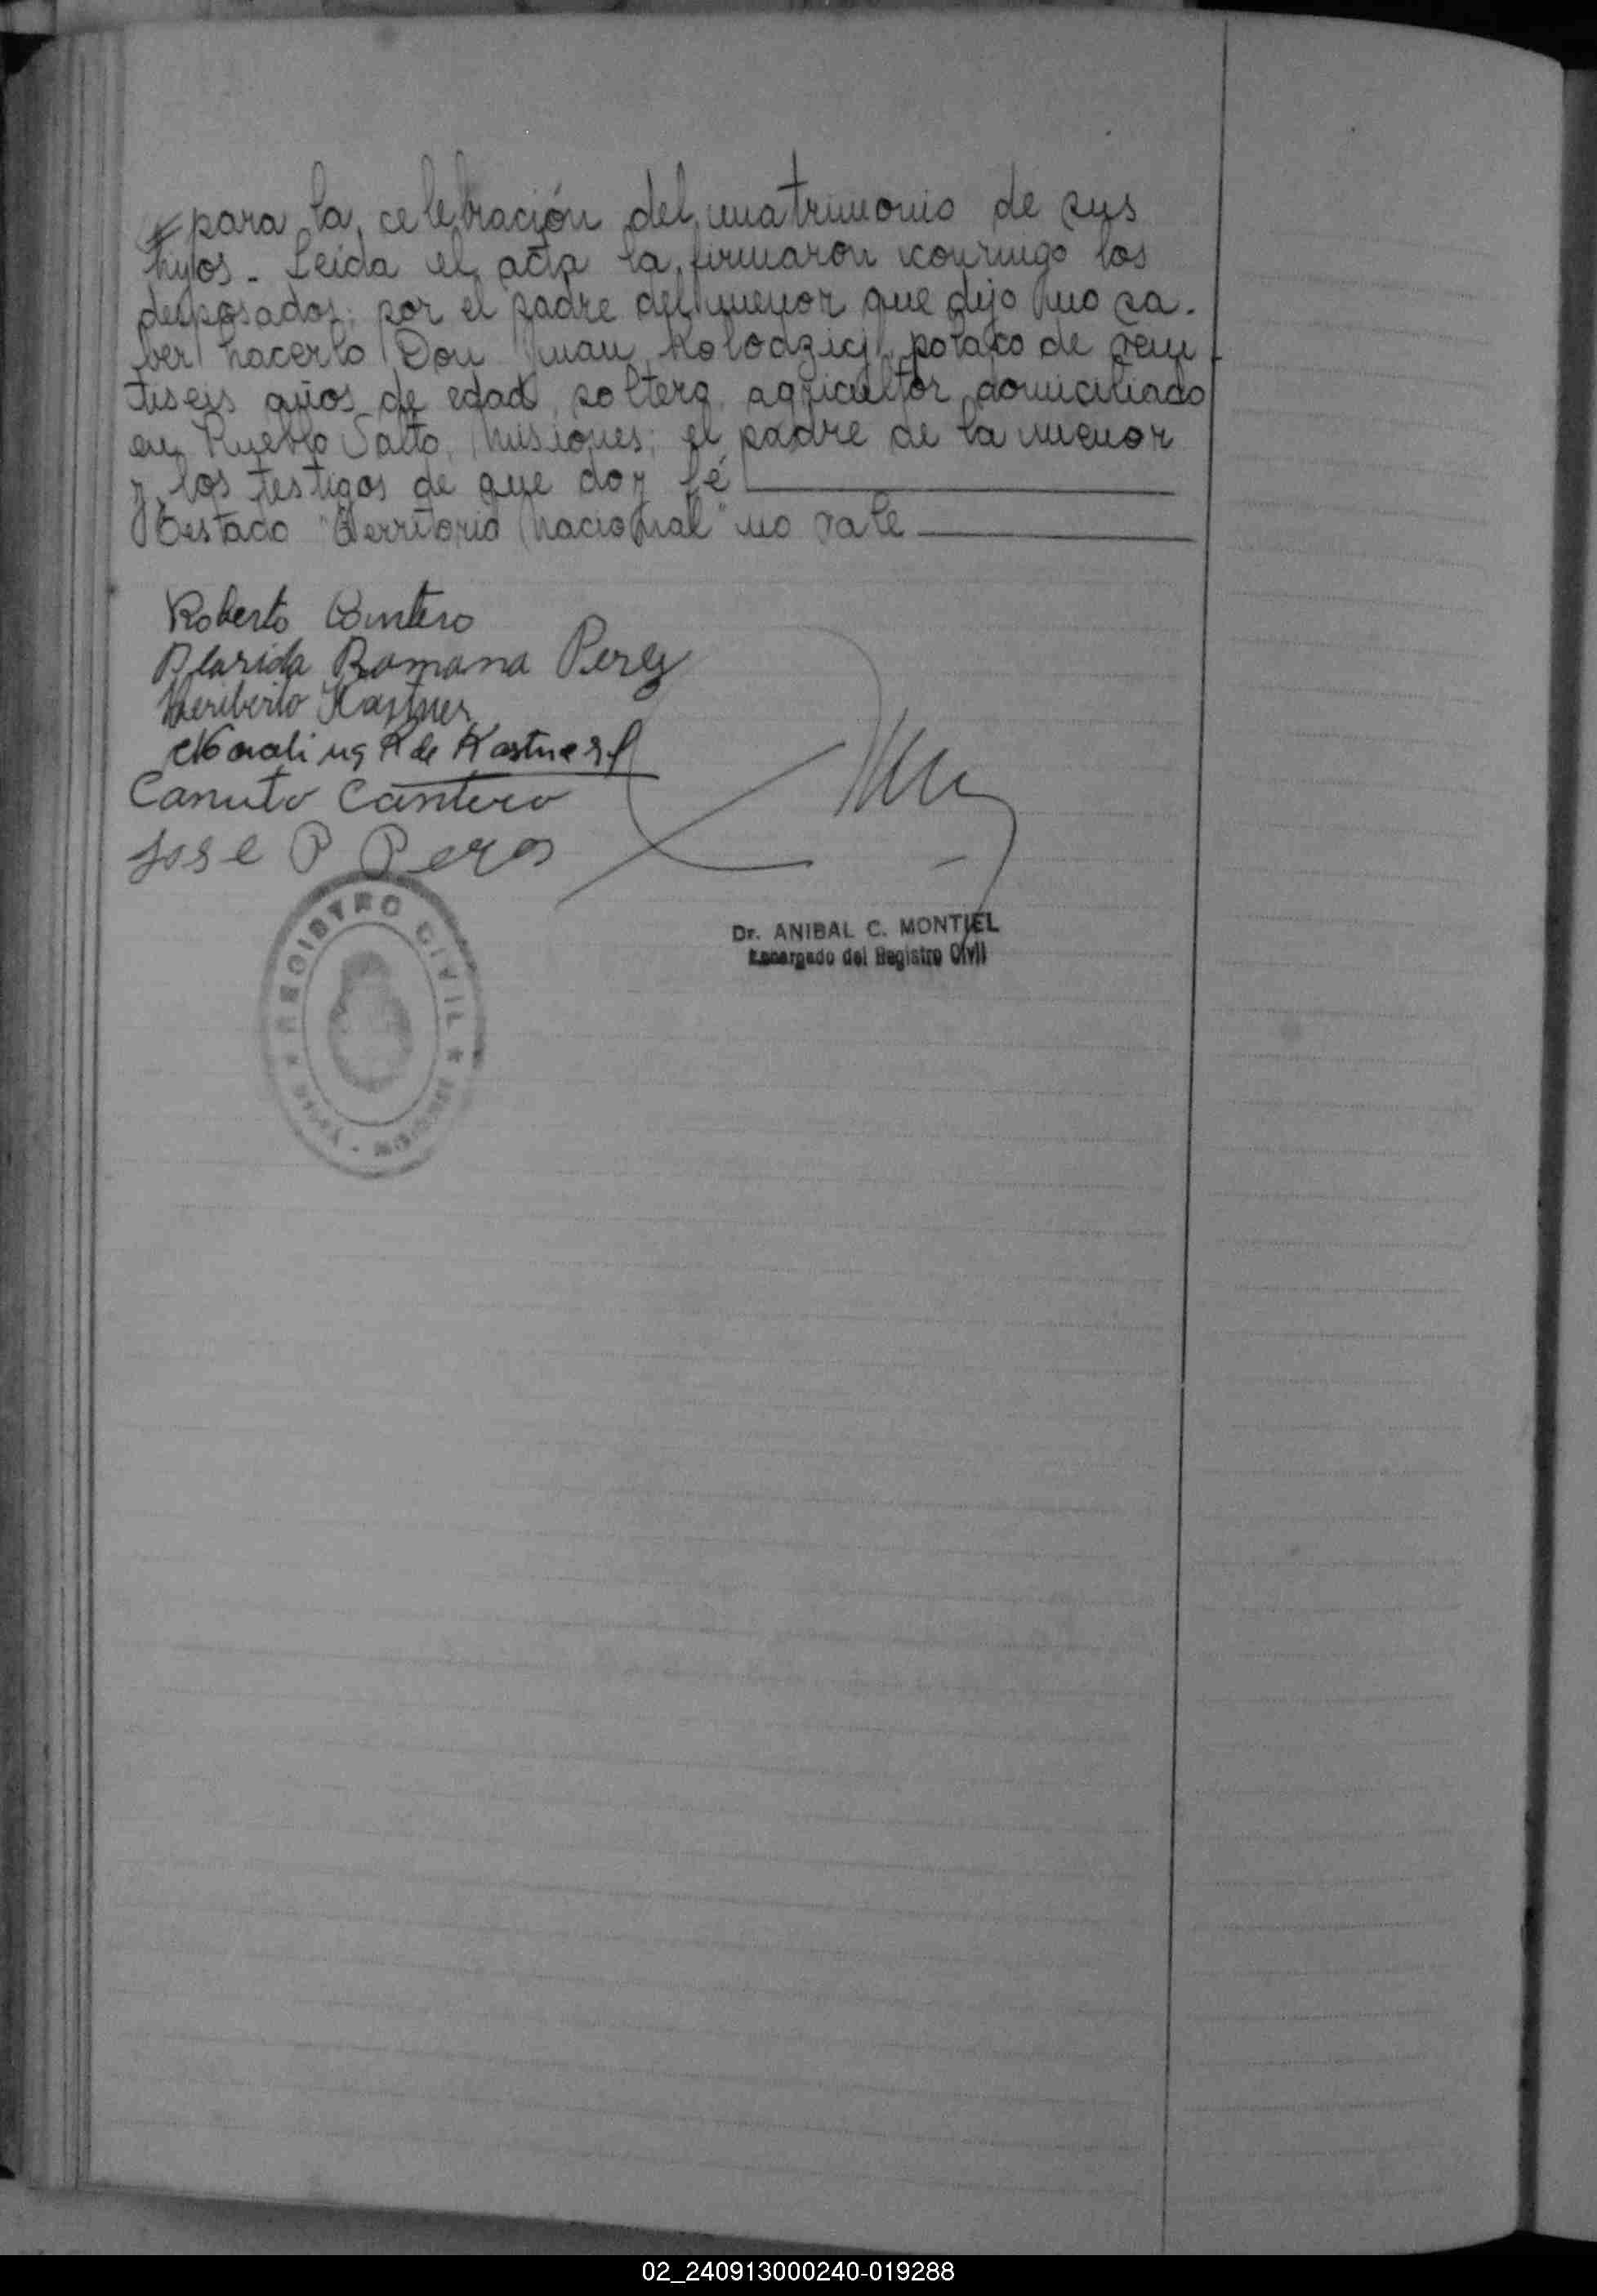 para la celebración del matrimonio de sus
hijos - Leida el acta la firmaron conmigo los
desposados; por el padre del menor que dijo no sa-
ber hacerlo Don Juan Kolodziej, polaco de vein
tiseis años de edad, soltero, agricultor domiciliado
en Pueblo Salto, Misiones; el padre de la menor
y los testigos de que doy fé
Testado "Territorio Nacional" no vale
Roberto
Ramona Perez
Heriberto Kastner
R de Kastner
Canuto Cantero
Jose P
REGISTRO CIVIL
Dr. ANIBAL C. MONTIEL
Encargado del Registro Civil
02_240913000240-019288